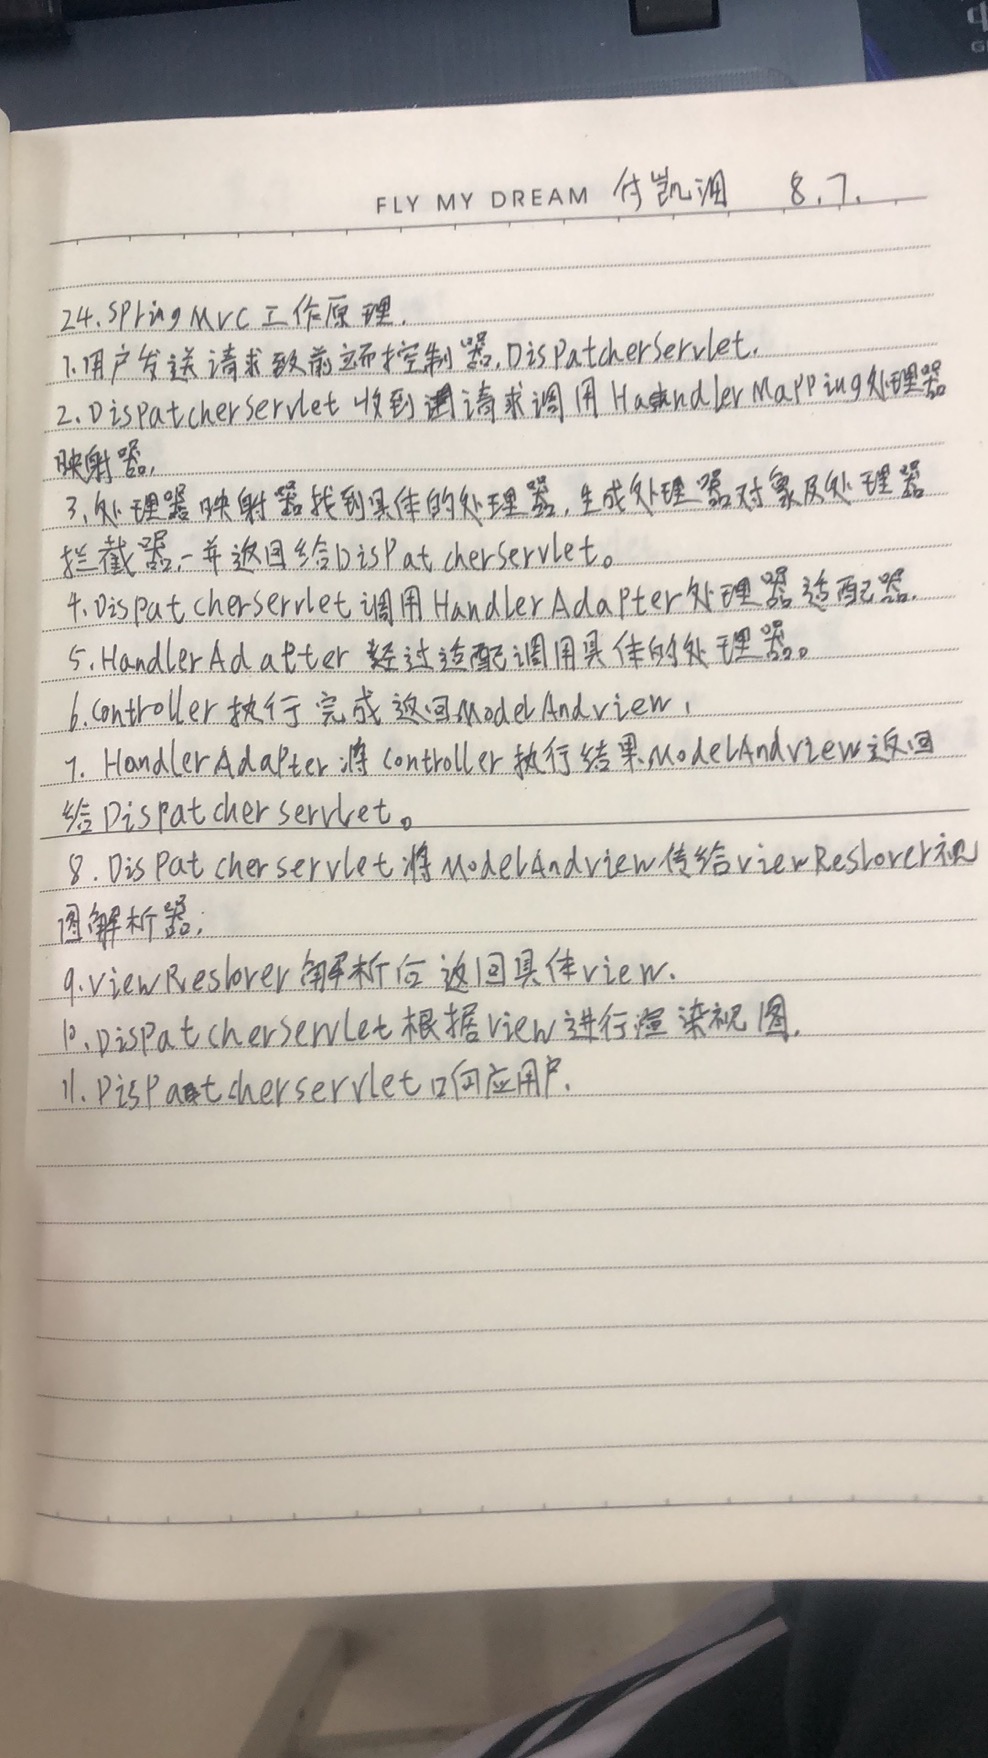 FLY MY DREAM 付凯泪 8.7.
24.SpringMVC工作原理.
1.用户发送请求致前端控制器,DispatcherServlet.
2.DispatcherServlet收到请求调用HandlerMapping处理器
映射器,
3.处理器映射器找到具体的处理器,生成处理器对象及处理器
拦截器,一并返回给DispatcherServlet。
4.DispatcherServlet调用HandlerAdapter处理器适配器.
5.HandlerAdapter经过适配调用具体的处理器。
6.Controller执行完成返回ModelAndView,
7.HandlerAdapter将Controller执行结果ModelAndView返回
给DispatcherServlet。
8.DispatcherServlet将ModelAndView传给viewReslover视
图解析器;
9.viewReslover解析后返回具体view.
10.DispatcherServlet根据view进行渲染视图.
11.DispatcherServlet响应用户.